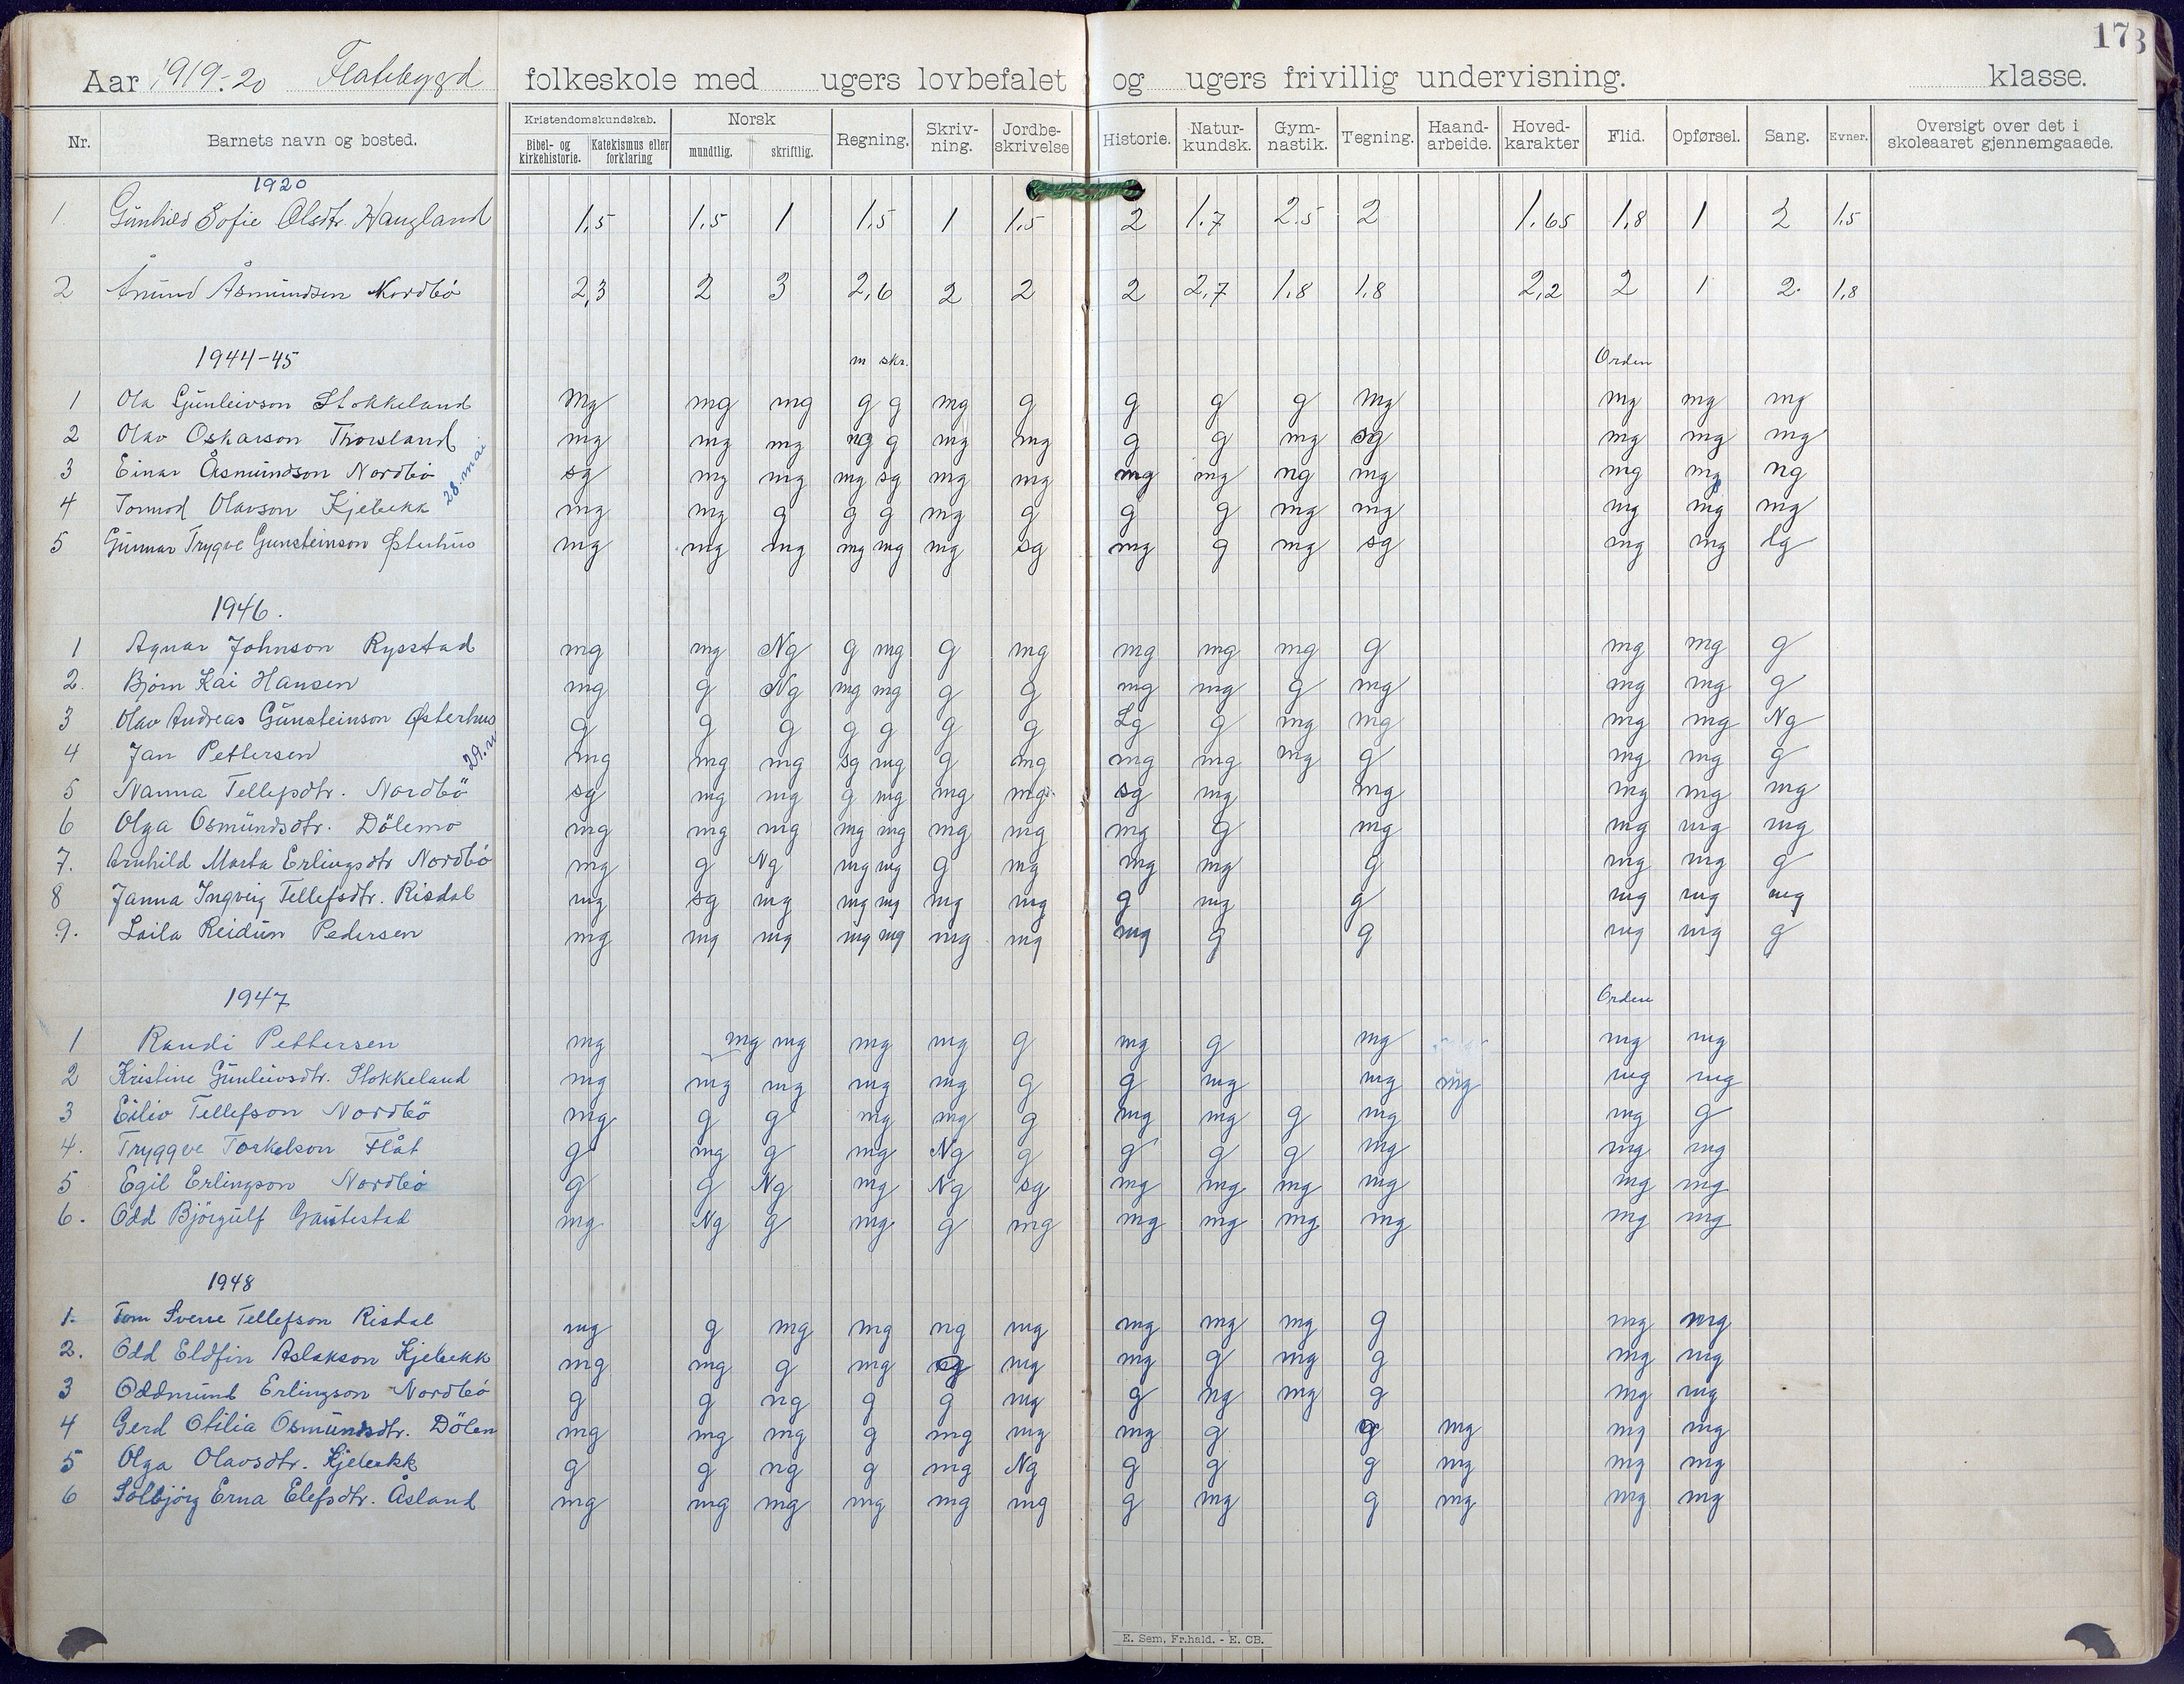 173
Aar 1919-20 Flatebygd folkeskole med ugers lovbefalet og ugers frivillig undervisning. klasse.
Nr. Barnets navn og bosted. Kristendomskundskab. Bibel- og kirkehistorie. Katekismus eller forklaring Norsk mundtlig. skriftlig. Regning. Skriv-ning. Jordbe-skrivelse Historie. Natur-kundsk. Gym-nastik. Tegning. Haand-arbeide. Hoved-karakter Flid. Opførsel. Sang. Evner. Oversigt over det i skoleaaret gjennemgaaede.
1920
1 Gunhild Sofie Olsdtr. Haugland 1,5 1,5 1 1,5 1 1,5 2 1,7 2,5 2 1,65 1,8 1 2 1,5
2 Ånund Åsmundsen Nordbö 2,3 2 3 2,6 2 2 2 2,7 1,8 1,8 2,2 2 1 2. 1,8
1944-45 m skr. Orden
1 Ola Gunleivson Stokkeland mg mg mg g g mg g g g g mg mg mg mg
2 Olav Oskarson Thorsland mg mg mg ng g mg mg g g mg sg mg mg mg
3 Einar Åsmundson Nordbö sg mg mg mg sg mg mg mg mg ng mg mg mg ng
28. mai
4 Tormod Olavson Kjebekk mg mg g g g mg g g g mg mg mg mg mg
5 Gunnar Trygve Gunsteinson Østerhus mg mg mg mg mg mg sg mg g mg sg mg mg lg
1946.
1 Agnar Johnson Rysstad mg mg Ng g mg g mg mg mg mg g mg mg g
2. Björn Kai Hansen mg g Ng mg mg g g mg mg g mg mg mg g
3 Olav Andreas Gunsteinson Østerhus g g g g g g g Lg g mg mg mg mg Ng
4 Jan Pettersen mg mg mg sg mg g mg mg mg mg g mg mg g
29.
5 Nanna Tellefsdtr. Nordbö sg mg mg g mg mg mg sg mg mg mg mg mg
6 Olga Osmundsdtr. Dölemo mg mg mg mg mg mg mg mg g mg mg mg mg
7. Arnhild Marta Erlingsdtr Nordbö mg g Ng mg mg g mg mg mg g mg mg g
8 Janna Ingveig Tellefsdtr. Risdal mg sg mg mg mg mg mg g mg g mg mg mg
9. Laila Reidun Pedersen mg mg mg mg mg mg mg mg g g mg mg g
1947 Orden
1 Randi Pettersen mg mg mg mg mg g mg g mg mg mg
2 Kristine Gunleivsdtr. Stokkeland mg mg mg mg mg g g mg mg mg mg mg
3 Eiliv Tellefson Nordbö mg g g mg mg g mg mg g mg mg g
4. Tryggve Torkelson Flåt g mg g mg Ng g g g g mg mg mg
5 Egil Erlingson Nordbö g g Ng mg Ng sg mg mg mg mg mg mg
6. Odd Björgulf Gautestad mg Ng g mg g mg mg mg mg mg mg mg
1948
1. Tom Sverre Tellefson Risdal mg g mg mg ng mg mg mg mg g mg mg
2. Odd Eldfin Aslakson Kjebekk mg mg g mg ng mg mg g mg g mg mg
3 Oddmund Erlingson Nordbö g g ng g g mg g ng mg g mg mg
4 Gerd Otilia Osmundsdtr. Dölem mg mg mg g mg mg mg g g mg mg mg
5 Olga Olavsdtr. Kjebekk g g ng g mg Ng g g g mg mg mg
6 Solbjörg Erna Elefsdtr. Åsland mg mg mg mg mg mg g mg g mg mg mg
E. Sem, Fr.hald. - E. CB.